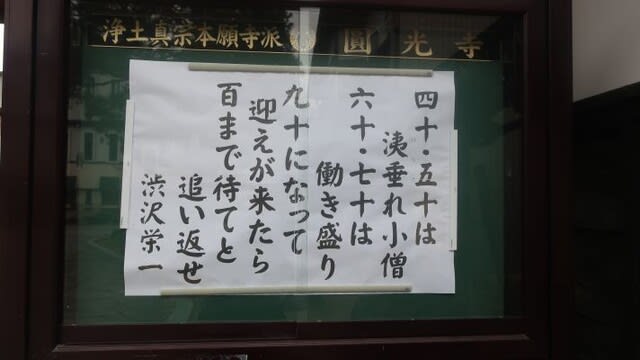 浄土真宗本願寺派 圓光寺
四十・五十は
洟垂れ小僧
六十・七十は
働き盛り
九十になって
迎えが来たら
百まで待てと
追い返せ
渋沢栄一